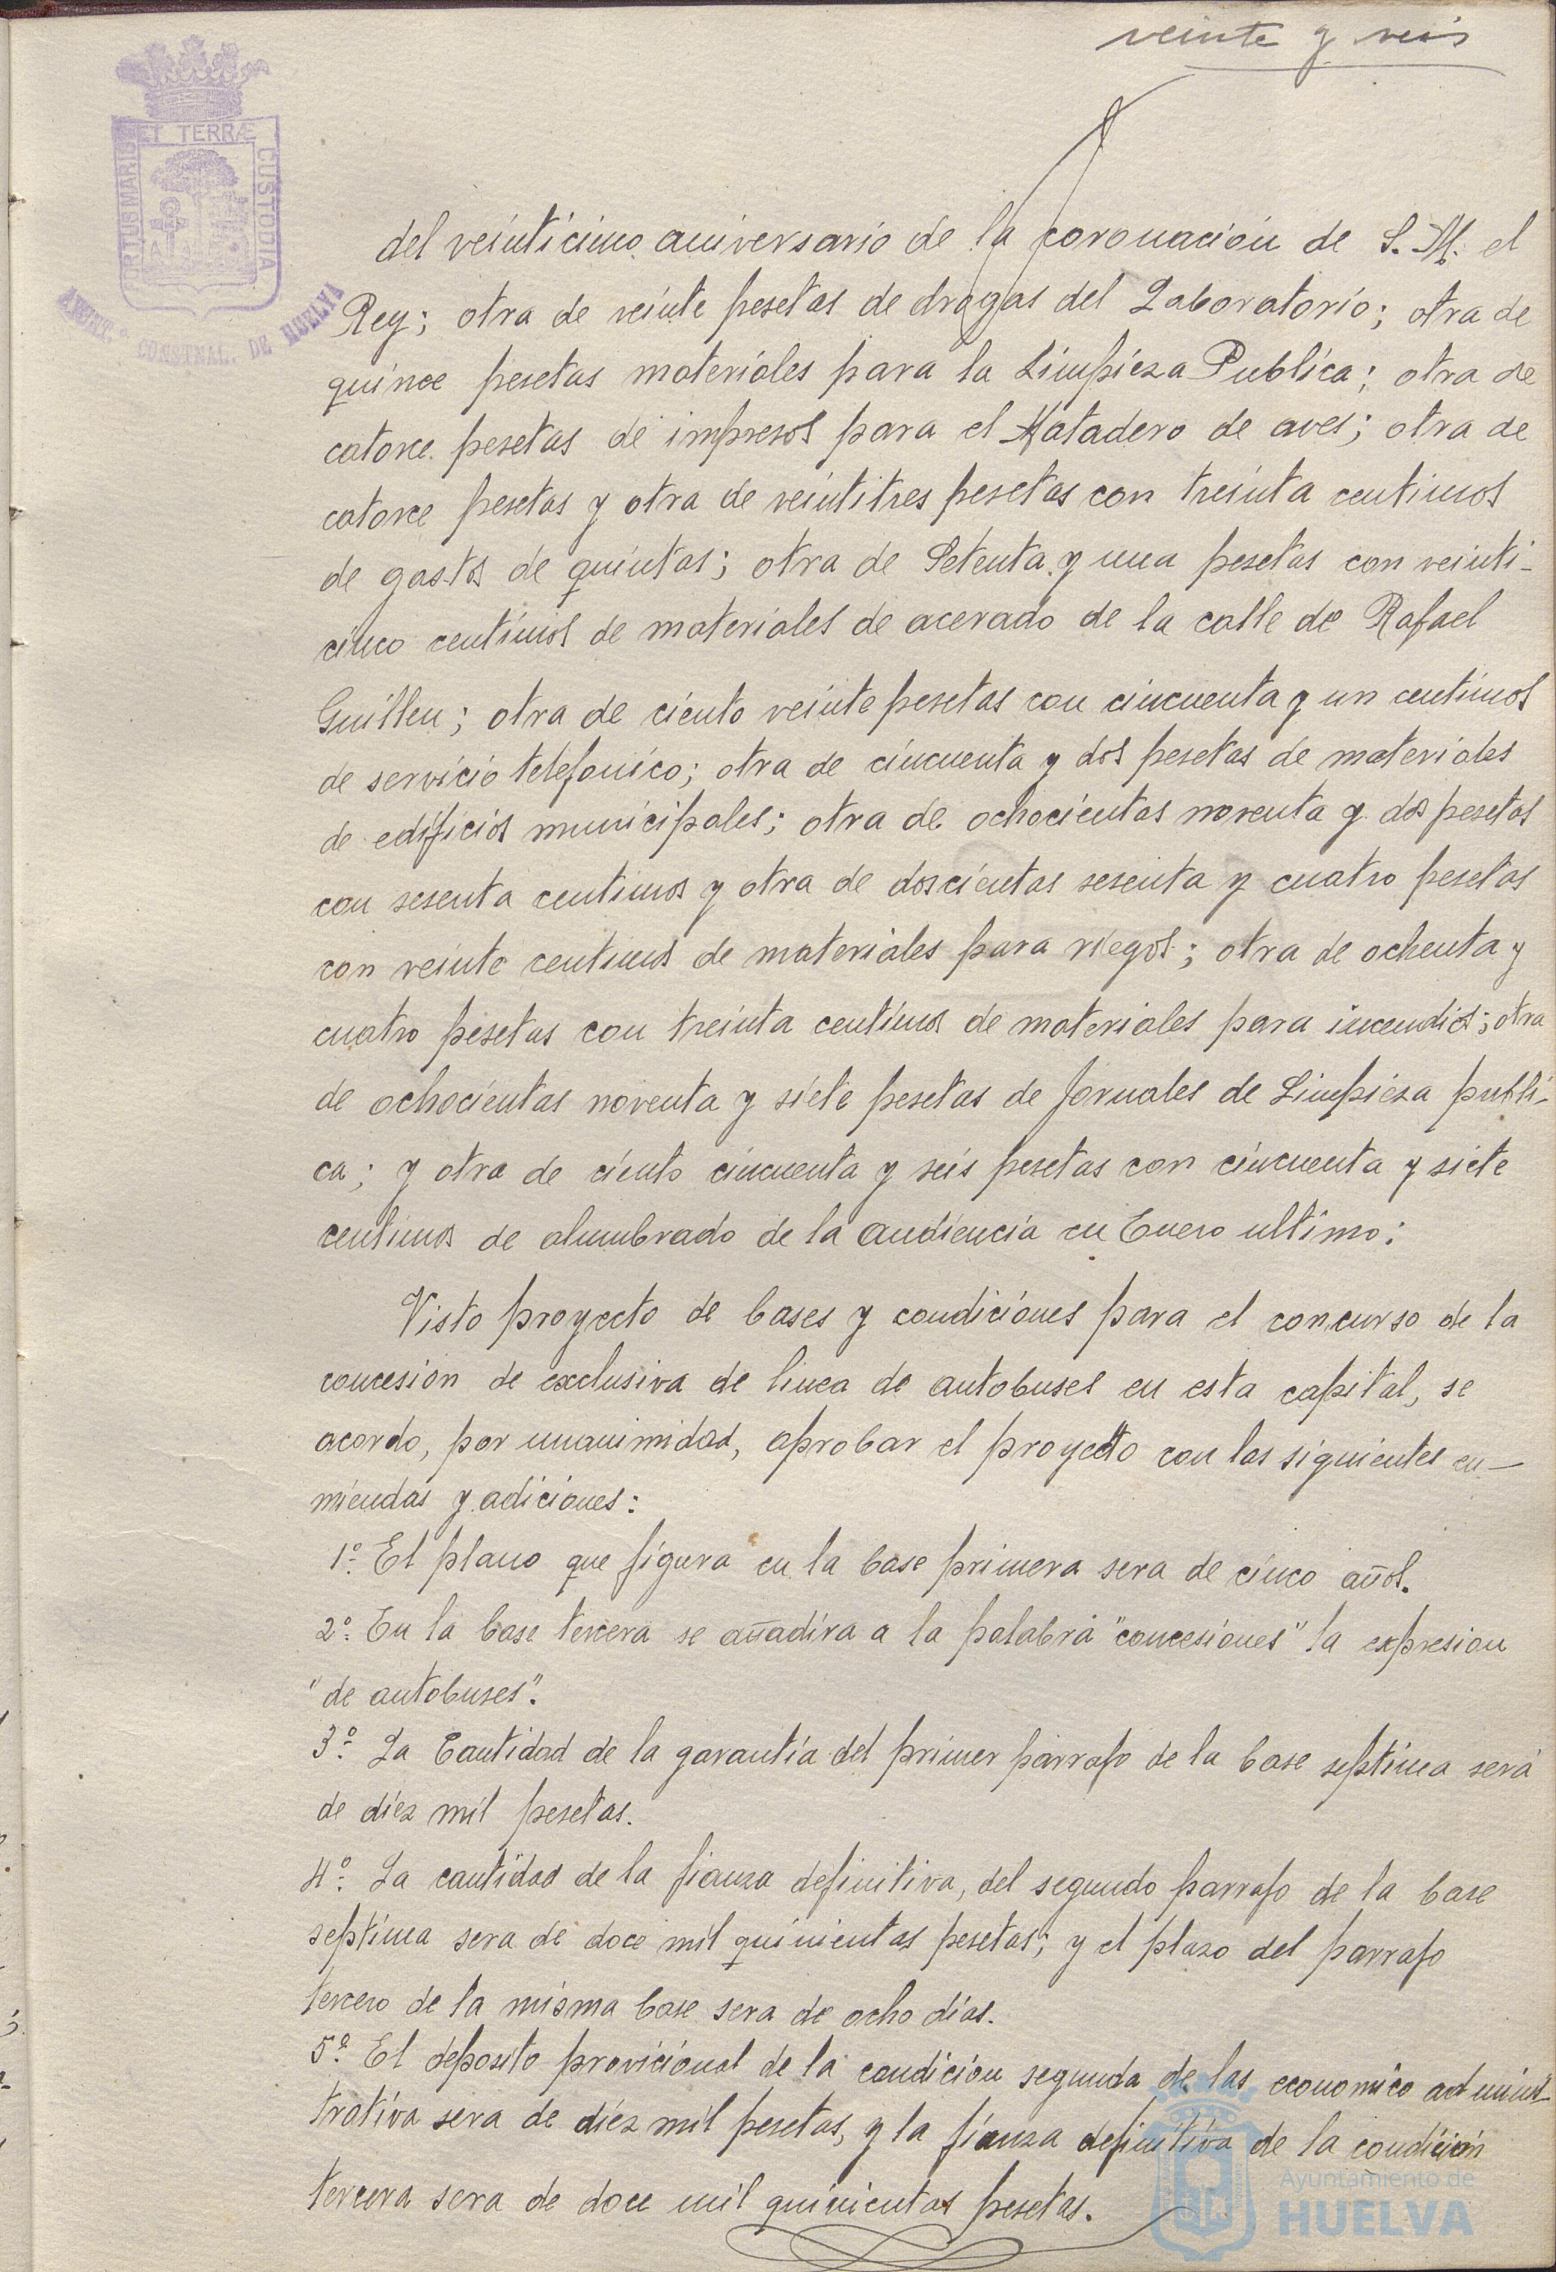 veinte y seis
PORTUS MARIS ET TERRÆ CUSTODIA
AYUNT.º CONSTNAL. DE HUELVA
del veinticinco aniversario de la coronacion de S. M. el
Rey; otra de veinte pesetas de drogas del Laboratorio; otra de
quince pesetas materiales para la Limpieza Publica; otra de
catorce pesetas de impresos para el Matadero de aves; otra de
catorce pesetas y otra de veintitres pesetas con treinta centimos
de gastos de quintas; otra de Setenta y una pesetas con veinti-
cinco centimos de materiales de acerado de la calle de Rafael
Guillen; otra de ciento veinte pesetas con cincuenta y un centimos
de servicio telefonico; otra de cincuenta y dos pesetas de materiales
de edificios municipales; otra de ochocientas noventa y dos pesetas
con sesenta centimos y otra de doscientas sesenta y cuatro pesetas
con veinte centimos de materiales para riegos; otra de ochenta y
cuatro pesetas con treinta centimos de materiales para incendios; otra
de ochocientas noventa y siete pesetas de jornales de Limpieza publi-
ca; y otra de ciento cincuenta y seis pesetas con cincuenta y siete
centimos de alumbrado de la audiencia en Enero ultimo:
Visto proyecto de bases y condiciones para el concurso de la
concesion de exclusiva de linea de autobuses en esta capital, se
acordo, por unanimidad, aprobar el proyecto con las siguientes en-
miendas y adiciones:
1º- El plano que figura en la base primera sera de cinco años.
2º- En la base tercera se añadira a la palabra "concesiones" la expresion
"de autobuses".
3º- La Cantidad de la garantia del primer parrafo de la base septima sera
de diez mil pesetas.
4º- La cantidad de la fianza definitiva, del segundo parrafo de la base
septima sera de doce mil quinientas pesetas; y el plazo del parrafo
tercero de la misma base sera de ocho dias.
5º- El deposito provicional de la condicion segunda de las economico adminis-
trativa sera de diez mil pesetas, y la fianza definitiva de la condición
tercera sera de doce mil quinientas pesetas.
Ayuntamiento de
HUELVA